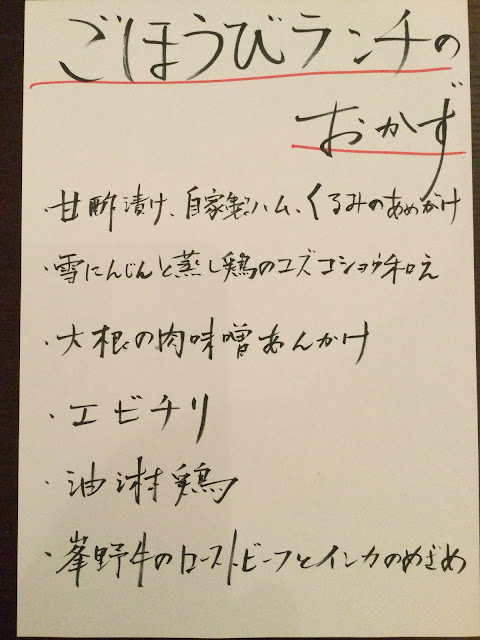 ごほうびランチの
おかず
・甘酢漬け、自家製ハム、くるみのあめがけ
・雪にんじんと蒸し鶏のユズコショウ和え
・大根の肉味噌あんかけ
・エビチリ
・油淋鶏
・峯野牛のローストビーフとインカのめざめ